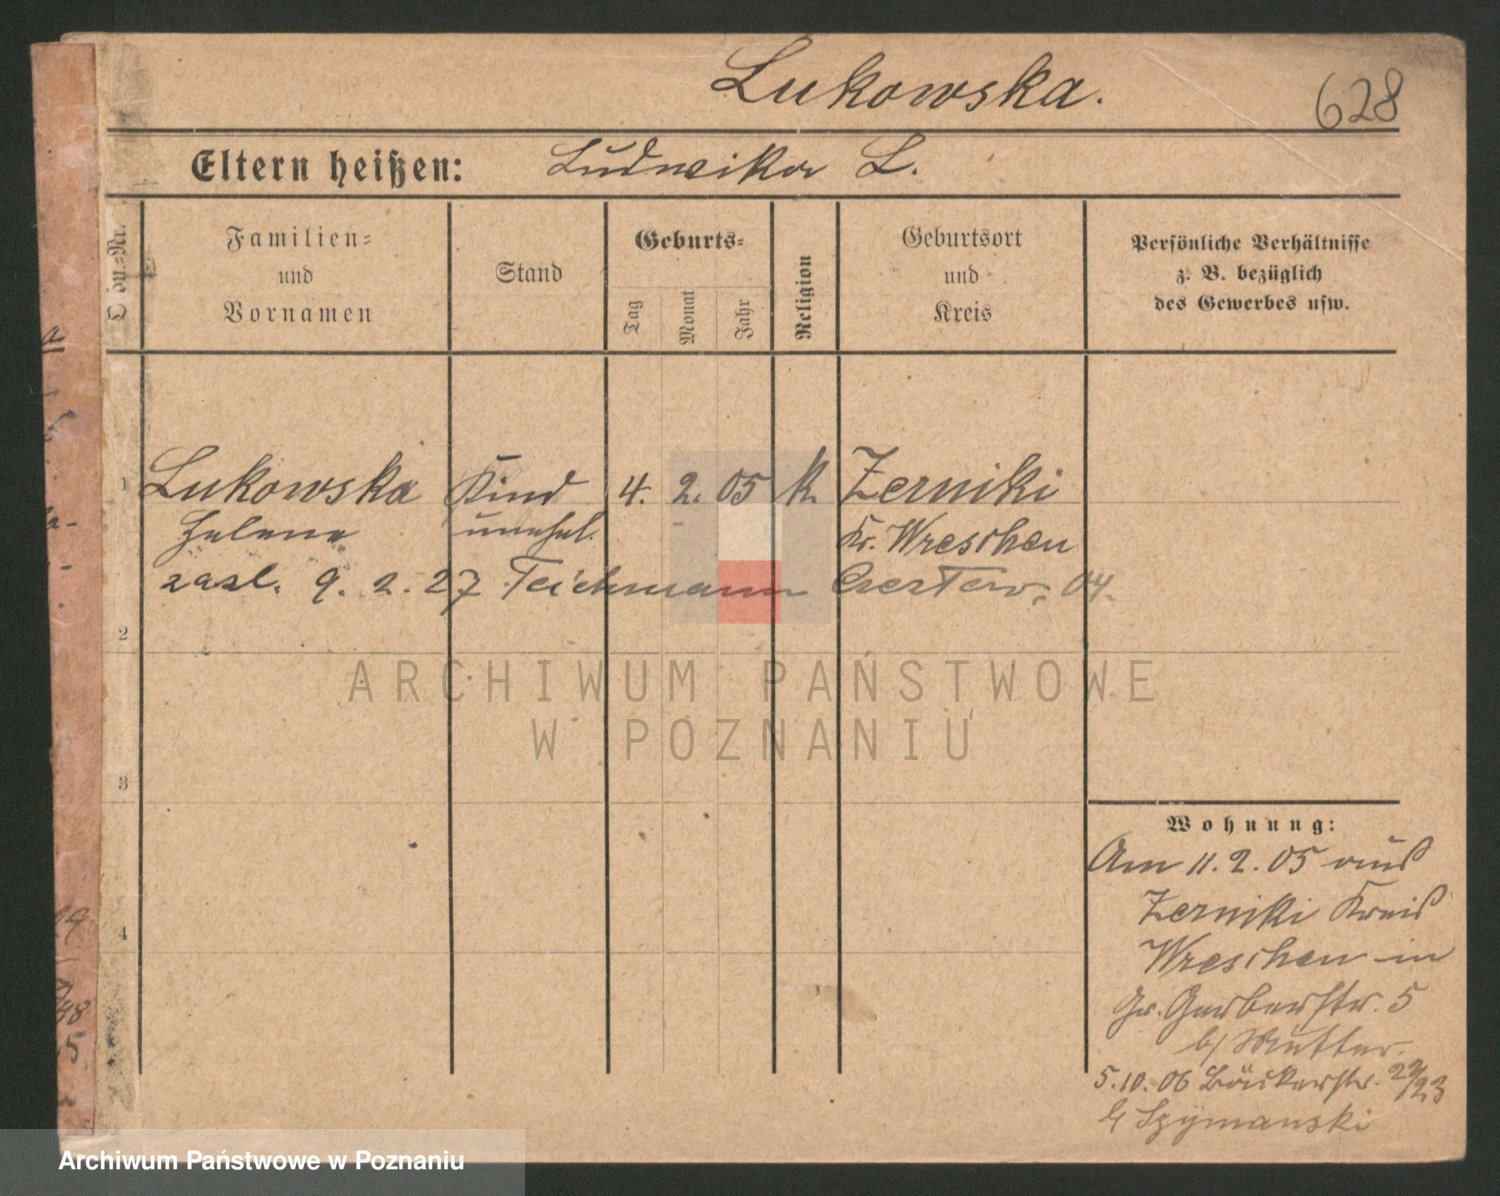 Lukowska.
628
Eltern heißen: Ludwika L.
Familien-
und
Vornamen
Stand
Geburts-
Tag
Monat
Jahr
Religion
Geburtsort
und
Kreis
Persönliche Verhältnisse
z. B. bezüglich
des Gewerbes usw.
1 Lukowska Kind 4. 2. 05 k. Zerniki
Helene unehel. Kr. Wreschen
zasl. 9. 2. 27 Teichmann
2
ARCHIWUM PAŃSTWOWE
W POZNANIU
3
Wohnung:
Am 11. 2. 05 aus
Zerniki Kreis
4
Wreschen in
Gr. Gerberstr. 5
b/ Mutter.
5. 10. 06 Bäckerstr. 22/23
b/ Szymanski
Archiwum Państwowe w Poznaniu